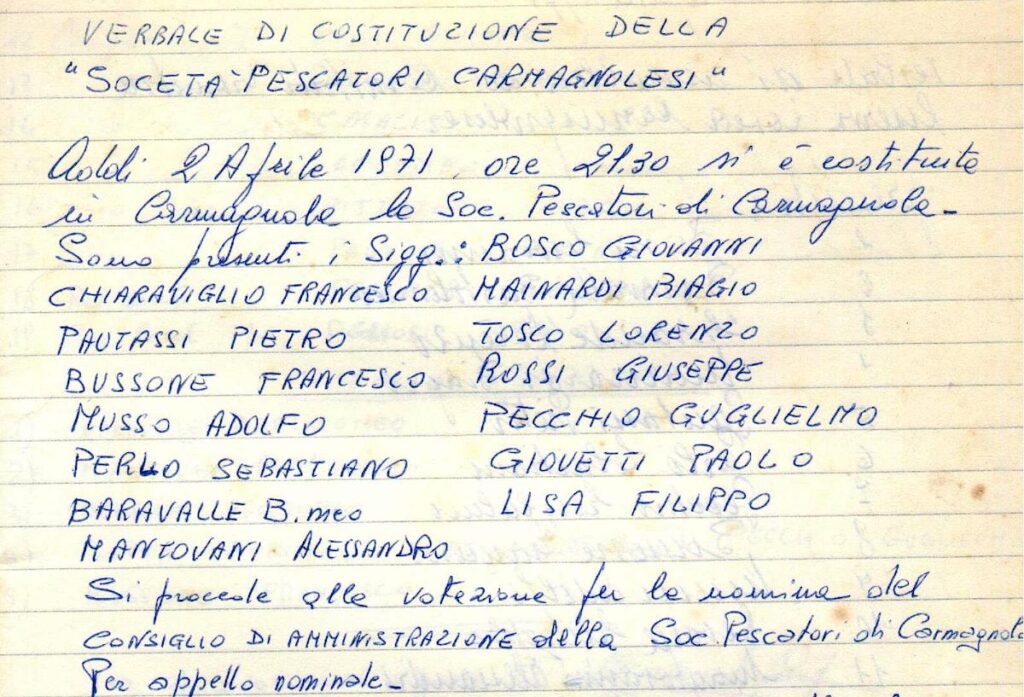 VERBALE DI COSTITUZIONE DELLA
"SOCETÀ PESCATORI CARMAGNOLESI"
Addi 2 Aprile 1971 ore 21.30 si è costituita
in Carmagnola la Soc. Pescatori di Carmagnola-
Sono presenti i Sigg.: BOSCO GIOVANNI
CHIARAVIGLIO FRANCESCO MAINARDI BIAGIO
PAUTASSI PIETRO TOSCO LORENZO
BUSSONE FRANCESCO ROSSI GIUSEPPE
MUSSO ADOLFO PECCHIO GUGLIELMO
PERLO SEBASTIANO GIOVETTI PAOLO
BARAVALLE B.meo LISA FILIPPO
MANTOVANI ALESSANDRO
Si procede alla votazione per la nomina del
CONSIGLIO DI AMMINISTRAZIONE della Soc Pescatori di Carmagnola
Per appello nominale-